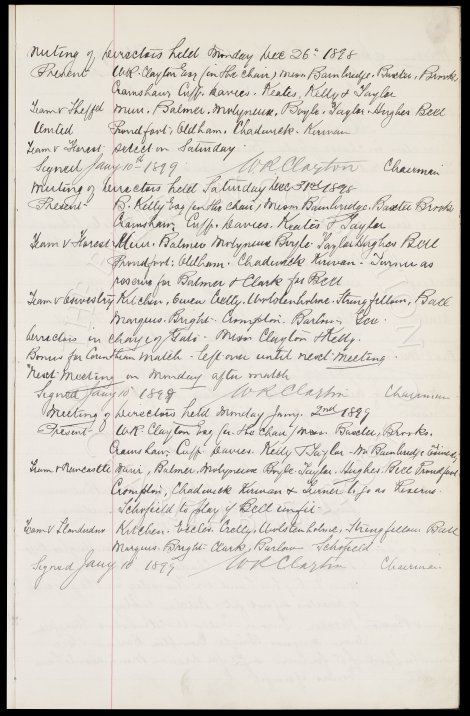 Meeting of Directors held Monday Dec 26th 1898
Present W.R. Clayton Esq (in the Chair) Messrs Bainbridge. Baxter, Brooks
Cranshaw, Cuff. Davies. Keates, Kelly & Taylor
Team v Sheffd Muir. Balmer. Molyneux, Boyle. Taylor. Hughes Bell
United Proudfoot, Oldham. Chadwick. Kirwan
Team v Forest select on Saturday.
Signed Jany 10th 1899 W R Clayton Chairman
Meeting of Directors held Saturday Dec 31st 1898
Present B. Kelly Esq (in the Chair) Messrs Bainbridge. Baxter Brooks
Cranshaw, Cuff. Davies Keates & Taylor
Team v Forest Muir. Balmer Molyneux Boyle Taylor Hughes Bell
Proudfoot. Oldham. Chadwick Kirwan. Turner as
reserve for Balmer & Clark for Bell
Team v Oswestry Kitchen, Owen Wolstenholme. Stringfellow, Ball
Marquis. Bright. Crompton. Barlow. Gee.
Directors in charge of Gate. Messrs Clayton & Kelly.
Bonus for Corinthian Match. left over until next meeting.
Next Meeting on Monday after match
Signed Jany 10 1899 W R Clayton Chairman
Meeting of Directors held Monday Jany. 2nd 1899
Present W.R. Clayton Esq (in the Chair) Messrs Baxter, Brooks.
Cranshaw, Cuff. Davies. Kelly & Taylor. Mr Bainbridge
Team v Newcastle Muir, Balmer, Molyneux Boyle. Taylor. Hughes. Bell Proudfoot
Crompton, Chadwick Kirwan & Turner to go as Reserve.
Schofield to play if Bell unfit.
Team v Llandudno Kitchen. Eccles Wolstenholme, Stringfellow Ball
Marquis. Bright. Clark, Barlow Schofield
Signed Jany 10 1899 W R Clayton Chairman